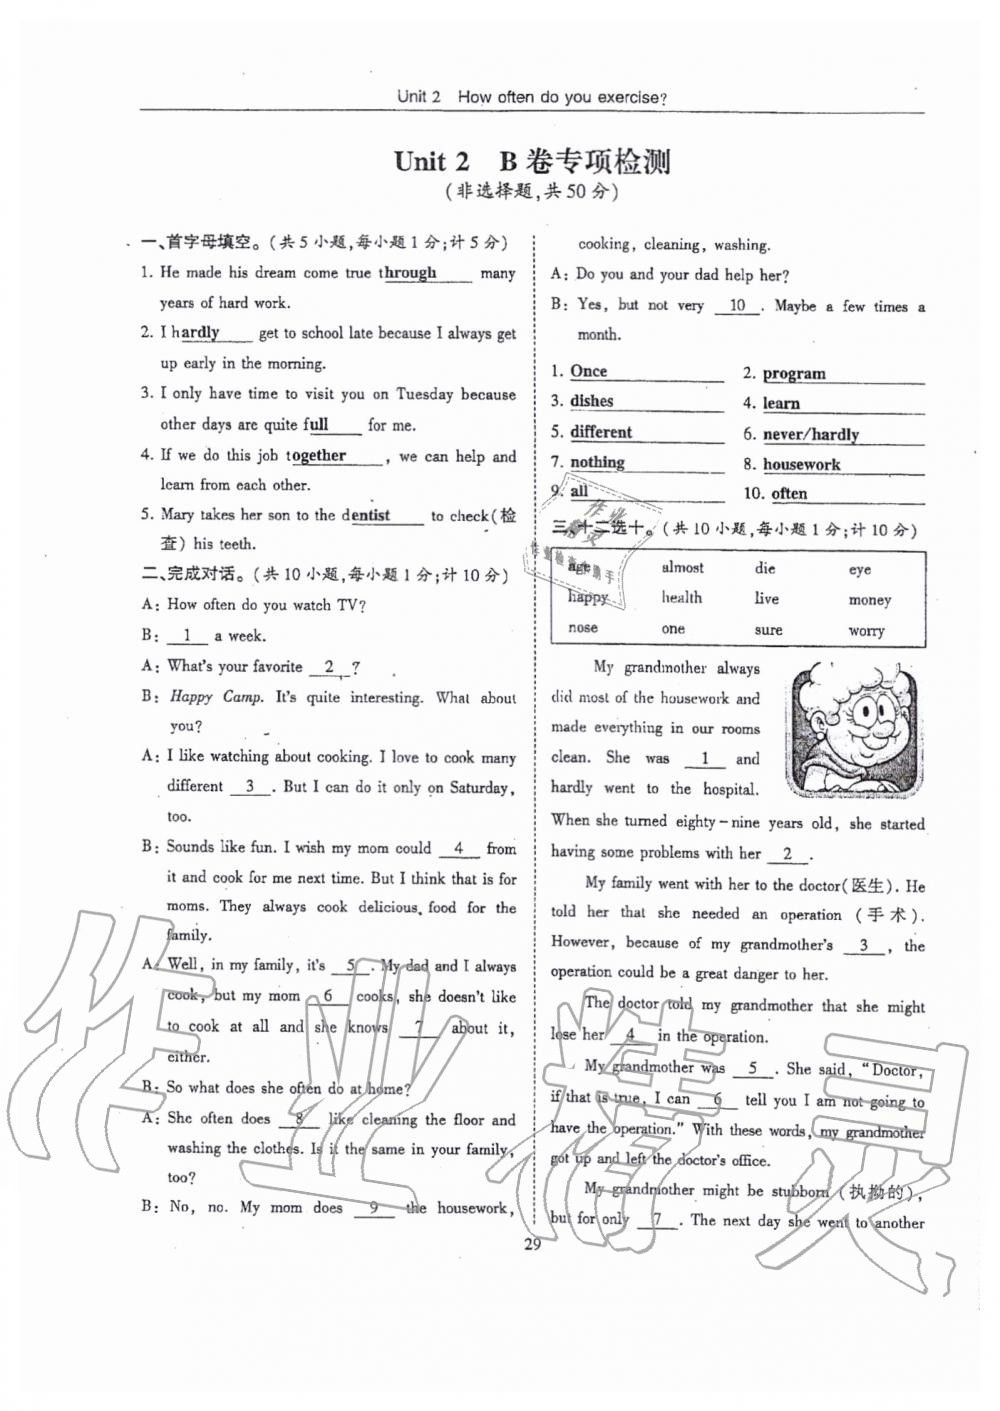 Unit 2 How often do you exercise?
Unit 2 B 卷专项检测
(非选择题,共50分)
一、首字母填空。(共5小题,每小题1分;计5分)
1. He made his dream come true through many
years of hard work.
2. I hardly get to school late because I always get
up early in the morning.
3. I only have time to visit you on Tuesday because
other days are quite full for me.
4. If we do this job together, we can help and
learn from each other.
5. Mary takes her son to the dentist to check(检
查) his teeth.
二、完成对话。(共10小题,每小题1分;计10分)
A: How often do you watch TV?
B: 1 a week.
A: What's your favorite 2 ?
B: Happy Camp. It's quite interesting. What about
you?
A: I like watching about cooking. I love to cook many
different 3 . But I can do it only on Saturday,
too.
B: Sounds like fun. I wish my mom could 4 from
it and cook for me next time. But I think that is for
moms. They always cook delicious food for the
family.
A: Well, in my family, it's 5 . My dad and I always
cook, but my mom 6 cooks, she doesn't like
to cook at all and she knows 7 about it,
either.
B: So what does she often do at home?
A: She often does 8 like cleaning the floor and
washing the clothes. Is it the same in your family,
too?
B: No, no. My mom does 9 the housework,
cooking, cleaning, washing.
A: Do you and your dad help her?
B: Yes, but not very 10 . Maybe a few times a
month.
1. Once 2. program
3. dishes 4. learn
5. different 6. never/hardly
7. nothing 8. housework
9. all 10. often
三、十二选十。(共10小题,每小题1分;计10分)
age almost die eye
happy health live money
nose one sure worry
My grandmother always
did most of the housework and
made everything in our rooms
clean. She was 1 and
hardly went to the hospital.
When she turned eighty-nine years old, she started
having some problems with her 2 .
My family went with her to the doctor(医生). He
told her that she needed an operation (手术).
However, because of my grandmother's 3 , the
operation could be a great danger to her.
The doctor told my grandmother that she might
lose her 4 in the operation.
My grandmother was 5 . She said, "Doctor,
if that is true, I can 6 tell you I am not going to
have the operation." With these words, my grandmother
got up and left the doctor's office.
My grandmother might be stubborn (执拗的),
but for only 7 . The next day she went to another
29
作业精灵
作业
精灵
作业检查小助手